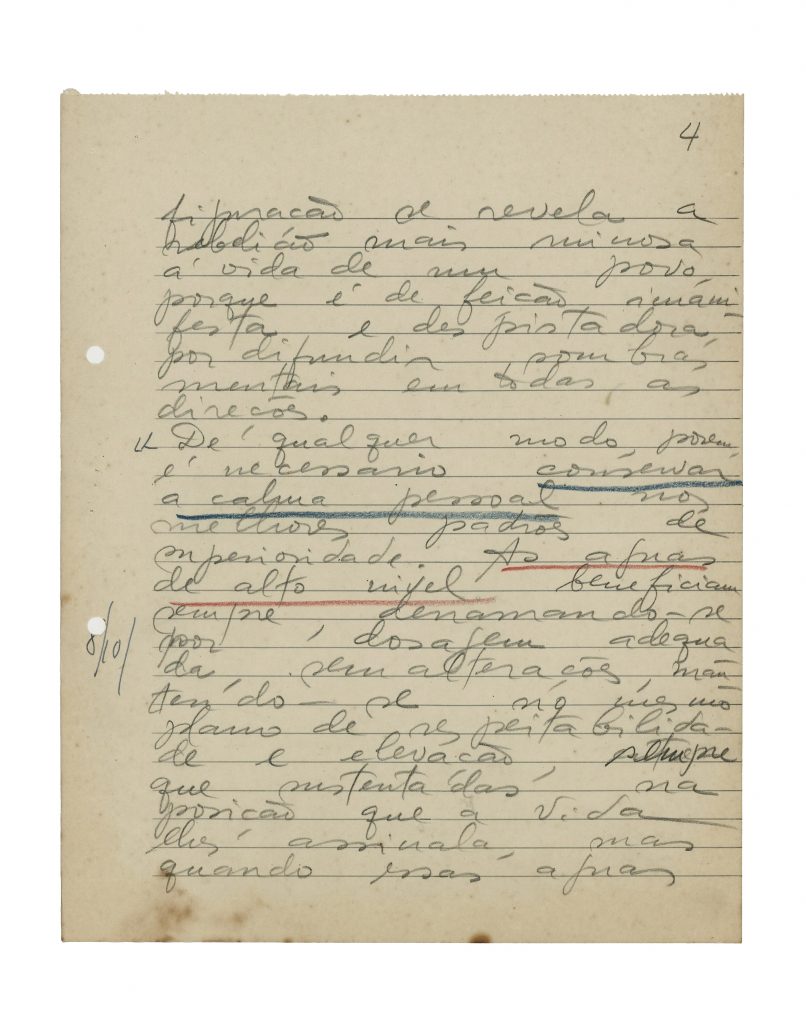 4
figuração se revela a
rebelião mais
á vida de um povo,
porque é de feicão imani
festa e despistadora,
por difundir sombras
mentais em todas as
direcões.
De qualquer modo, porem,
é necessario conservar
a calma pessoal nos
melhores padrões de
superioridade. As aguas
de alto nivel beneficiam
sempre derramando-se
por dosagem adequa
da, sem alteracões, man
tendo-se no mesmo
plano de respeitabilida-
de e elevacão, sempre
que sustentadas na
posicão que a vida
lhes assinala, mas
quando essas aguas
8/10/